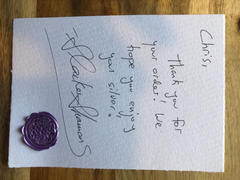 Chris,
Thank you for
your order! We
hope you enjoy
your silver.